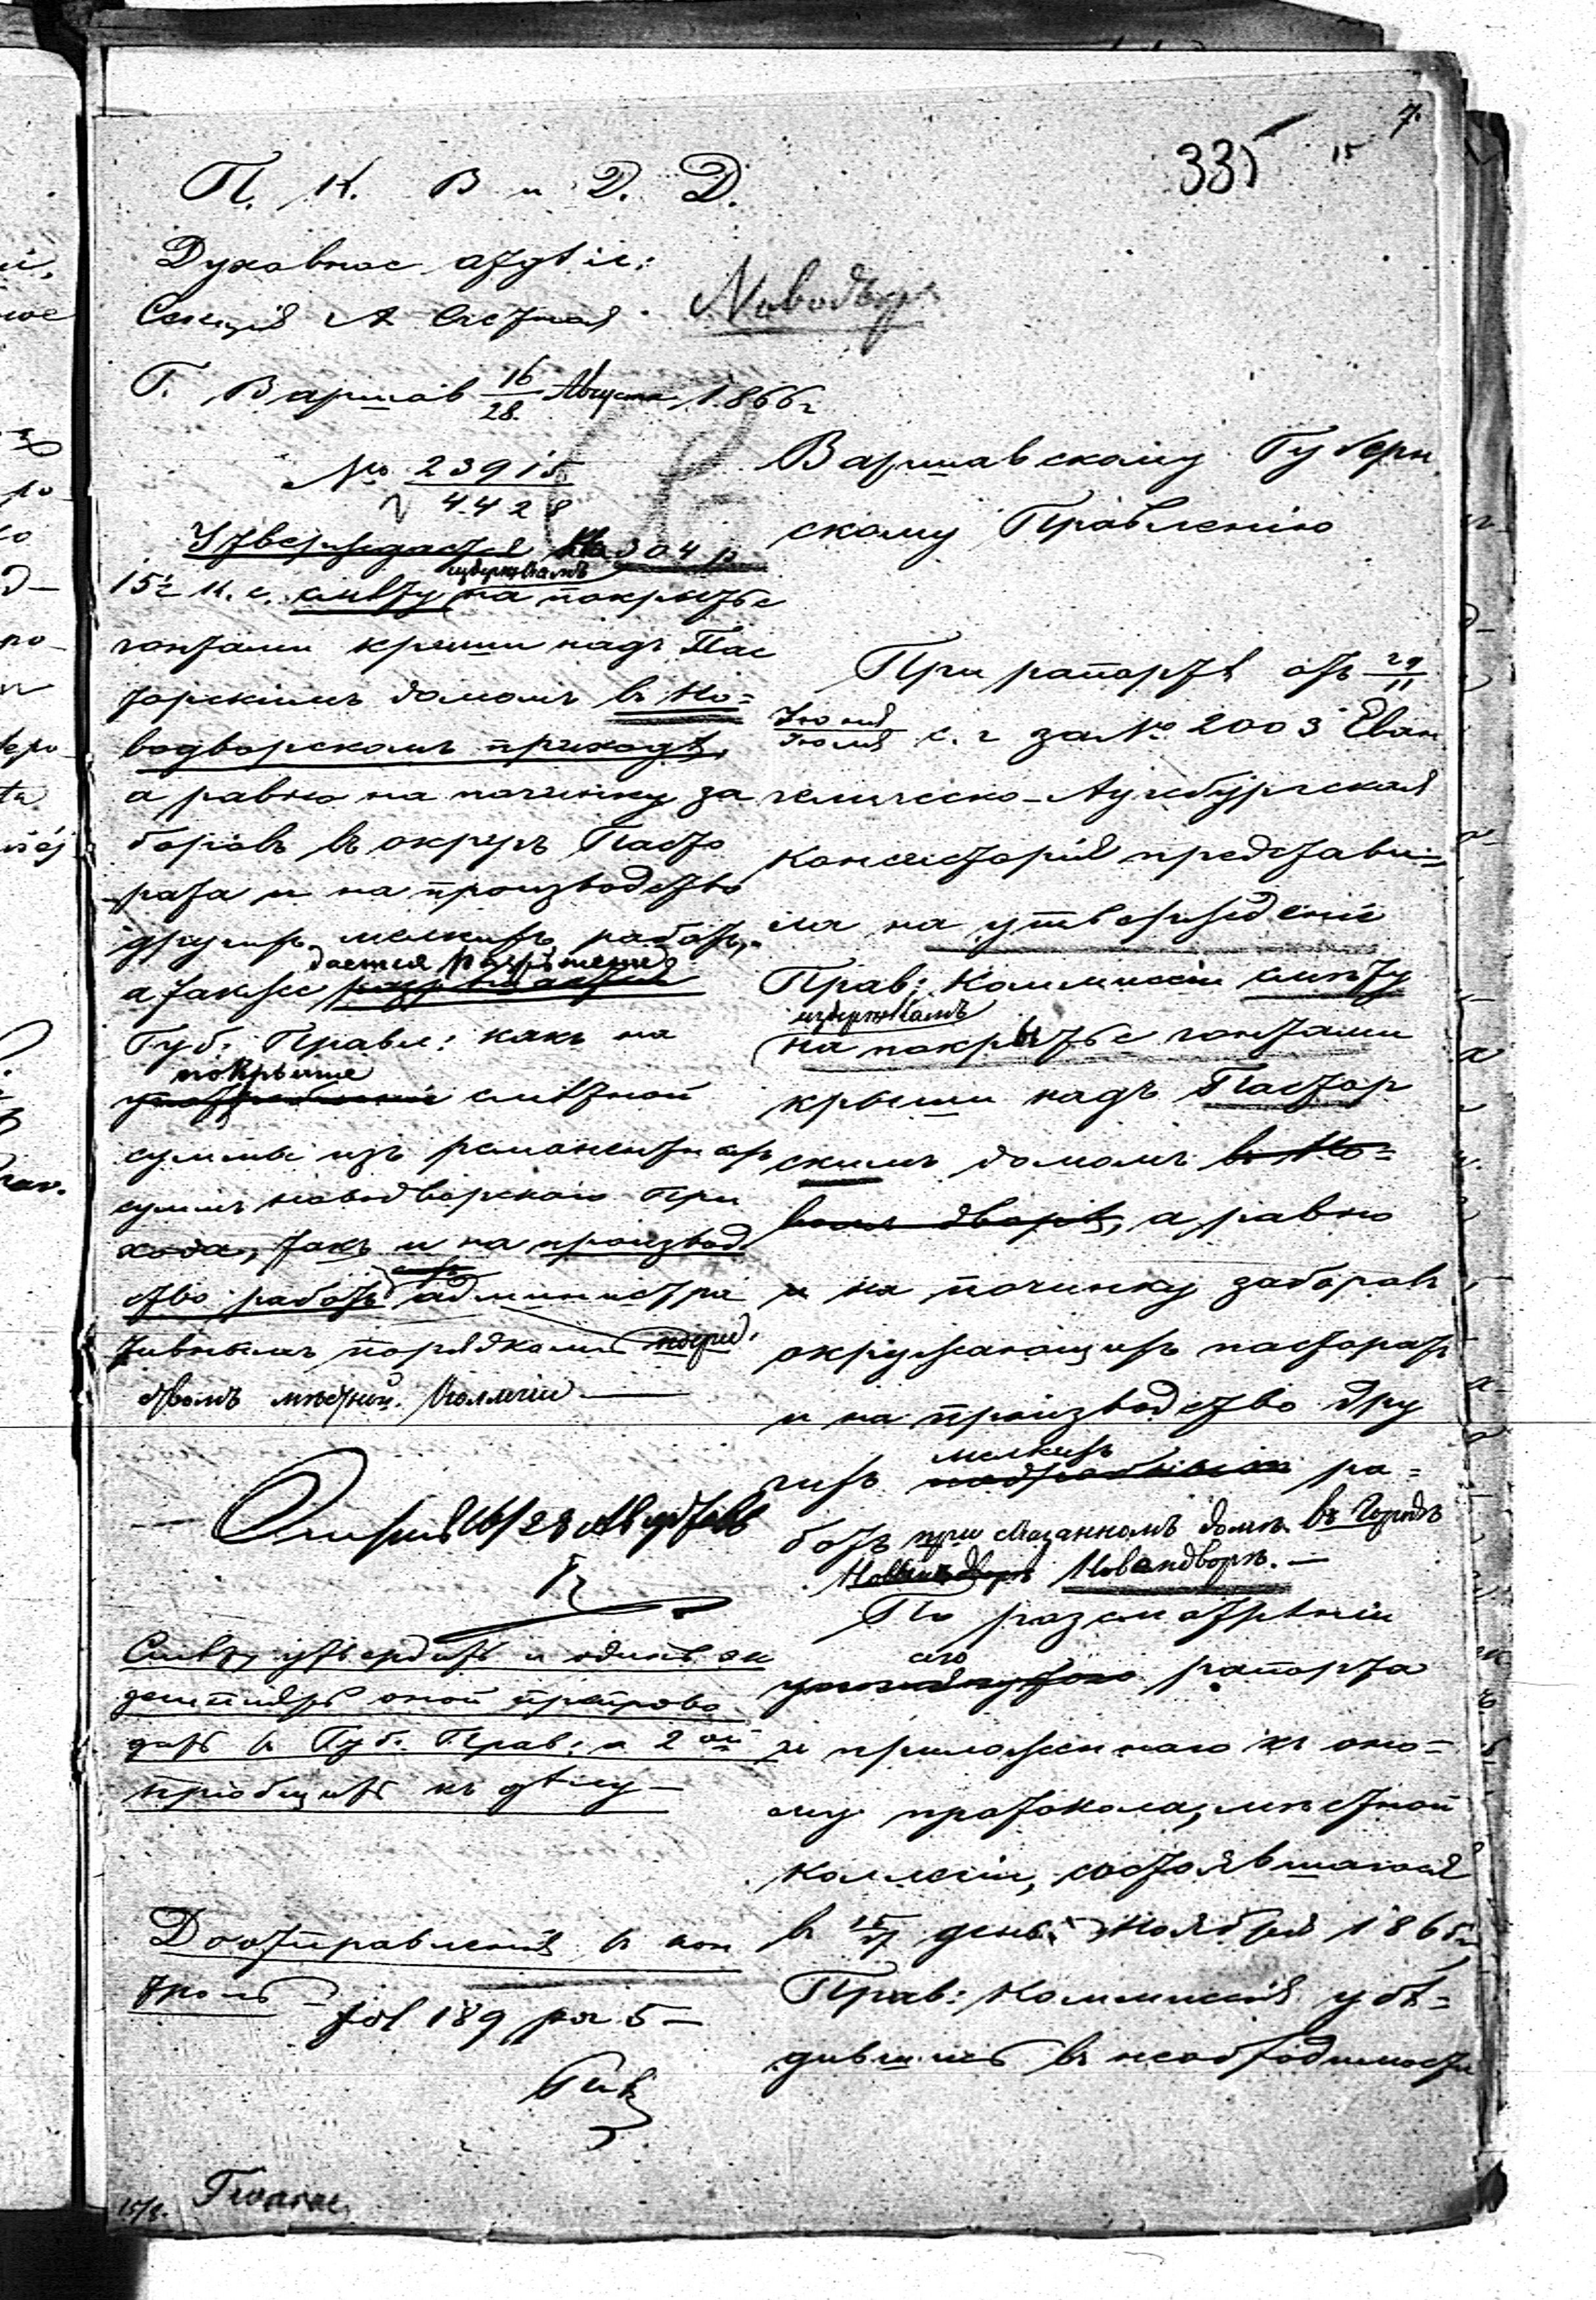 7.
335
15
П. К. В и Д. Д.
Духовное отдѣл:
Секція А Счетная
Новодвор
Г. Варшав 16/28 Августа 1866 г
№ 23915/4428
Утверждается на 304 р
15½ к. с. смѣту издержкамъ на покрытье
гонтами крыши надъ Пас
торскимъ домомъ въ Но=
водворскомъ приходѣ,
а равно на починку за
боровъ въ округъ Пасто
рата и на производство
другихъ мелкихъ работъ,
дается разрѣшеніе
а также
Губ. Правл: какъ на
покрытіе
смѣтной
суммы изъ ремонентныхъ
суммъ новодворскаго При
хода, такъ и на производ
ство работъ администра
тивнымъ порядкомъ
мѣстной Коллегіи
16/28 Августа
Смѣту утвердить и одинъ эк
земпляръ оной препрово
дить въ Губ. Прав: а 2ой
пріобщить къ дѣлу —
До отправленія въ кон
троль —
fol 189 poz 5 —
15/8.
Варшавскому Губерн
скому Правленію
При рапортѣ отъ 29/11
Іюня/Іюля с. г за № 2003 Еван
гелическо-Аугсбургская
Консисторія представи=
ла на утвержденіе
Прав: Коммиссіи смѣту
издержкамъ
на покрытье гонтами
крыши надъ Пастор
скимъ домомъ въ Но=
вомъ дворѣ, а равно
и на починку заборовъ
окружающихъ пасторатъ
и на производство дру
гихъ мелкихъ ра=
ботъ при сказанномъ домѣ въ Городѣ
Новомдворѣ. —
По разсмотрѣніи
сего
упомянутаго рапорта
и приложеннаго къ оно=
му протокола, мѣстной
коллегіи, состоявшагося
въ день Ноября 1865 г,
Прав: Коммиссія убѣ=
дившись въ необходимости